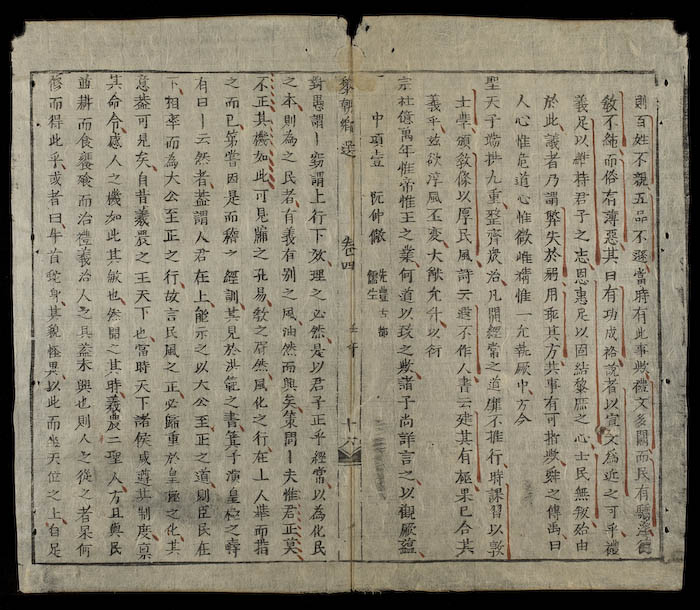 則百姓不親五品不遜當時有此事歟禮文多闕而民有驕淫德
敎不純而俗有薄惡其曰有功成裕說者以宣文為近之可乎禮
義足以維持君子之志恩惠足以固結黎庶之心士民無叛殆由
於此議者乃謂弊失於易用乖其方其事有可指歟舜之傳禹曰
人心惟危道心惟微惟精惟一允執厥中方今
聖天子端拱九重整齊庶治凡關經常之道靡不推行時課習以敦
士學頒敎條以厚民風詩云遐不作人書云建其有極果已合其
義乎玆欲淳風丕變大猷允升以衍
宗社億萬年惟帝惟王之業何道以致之歟諸子尚詳言之以觀厥蘊
中項壹 阮仲儆
黎朝會選 卷四 十六
對愚謂一竊謂上行下效理之必然是以君子正乎經常以為化民
之本則為之民者有義有別之風油然而興矣策問一夫惟君正莫
不正其機如此可見牖之孔易敎之胥然風化之行在上人舉而措
之而已第嘗因是而稽之經訓其見於洪範之書箕子演皇極之疇
有曰一云然者蓋謂人君在上能示之以大公至正之道則臣民在
下相率而為大公至正之行故言民風之正必歸重於皇極之化其
意蓋可見矣自昔羲農之王天下也當時天下諸侯咸遵其制度稟
其命令感人之機如此其敏也然聞之其時羲農二聖人方且與民
並耕而食饔飧而治禮義治人之具蓋未興也則人之從之者果何
修而得此乎或者曰牛首蛇身其貌怪異以此而坐天位之上自足